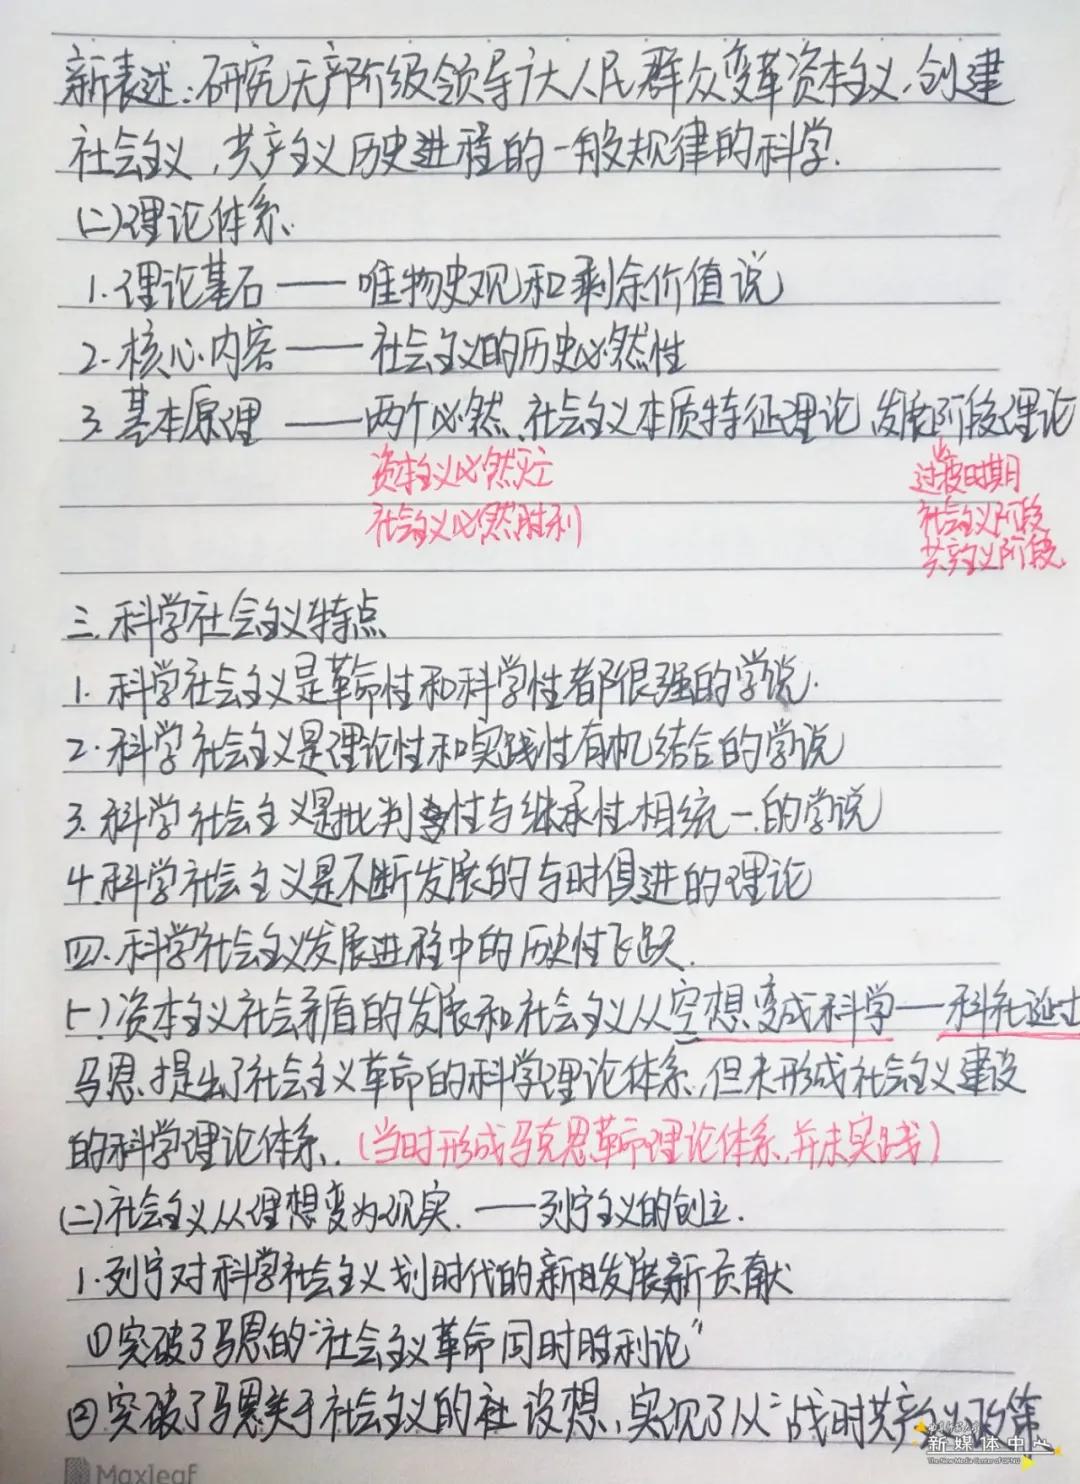 新表述：研究无产阶级领导广大人民群众变革资本主义，创建
社会主义，共产主义历史进程的一般规律的科学.
(二)理论体系.
1.理论基石——唯物史观和剩余价值说
2.核心内容——社会主义的历史必然性
3.基本原理——两个必然、社会主义本质特征理论 发展阶段理论
资本主义必然灭亡
过渡时期
社会主义必然胜利
社会主义阶段
共产主义阶段
三.科学社会主义特点
1.科学社会主义是革命性和科学性都很强的学说.
2.科学社会主义是理论性和实践性有机结合的学说
3.科学社会主义是批判性与继承性相统一的学说
4.科学社会主义是不断发展的与时俱进的理论
四.科学社会主义发展进程中的历史性飞跃.
(一)资本主义社会矛盾的发展和社会主义从空想变成科学——科社诞生
马恩提出了社会主义革命的科学理论体系,但未形成社会主义建设
的科学理论体系.(当时形成马克思革命理论体系,并未实践)
(二)社会主义从理想变为现实.——列宁主义的创立.
1.列宁对科学社会主义划时代的新发展新贡献
①突破了马恩的“社会主义革命同时胜利论”
②突破了马恩关于社会主义的设想,实现了从“战时共产主义政策
新媒体中心
The New Media Center of CFNU
Maxleaf